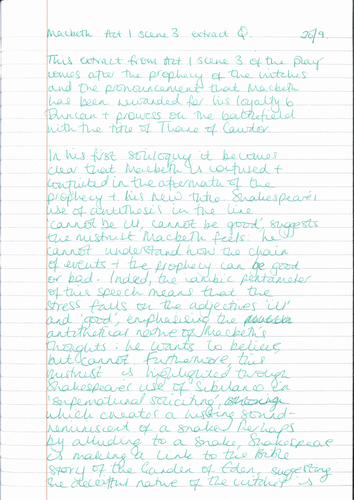 Macbeth Act 1 Scene 3 extract Q. 26/9.
This extract from Act 1 scene 3 of the play
comes after the prophecy of the witches
and the pronouncement that Macbeth
has been rewarded for his loyalty to
Duncan + prowess on the battlefield
with the title of Thane of Cawdor.
In his first soliloquy it becomes
clear that Macbeth is confused +
conflicted in the aftermath of the
prophecy + his new title. Shakespeare's
use of antithesis in the line
'cannot be ill, cannot be good', suggests
the mistrust Macbeth feels: he
cannot understand how the chain
of events + the prophecy can be good
or bad. Indeed, the iambic pentameter
of this speech means that the
stress falls on the adjectives 'ill'
and 'good', emphasising the
antithetical nature of Macbeth's
thoughts: he wants to believe,
but cannot. Furthermore, this
mistrust is highlighted through
Shakespeare's use of sibilance in
'supernatural soliciting',
which creates a hissing sound-
reminiscent of a snake. Perhaps
by alluding to a snake, Shakespeare
is making a link to the Bible
story of the Garden of Eden, suggesting
the deceitful nature of the witches' is